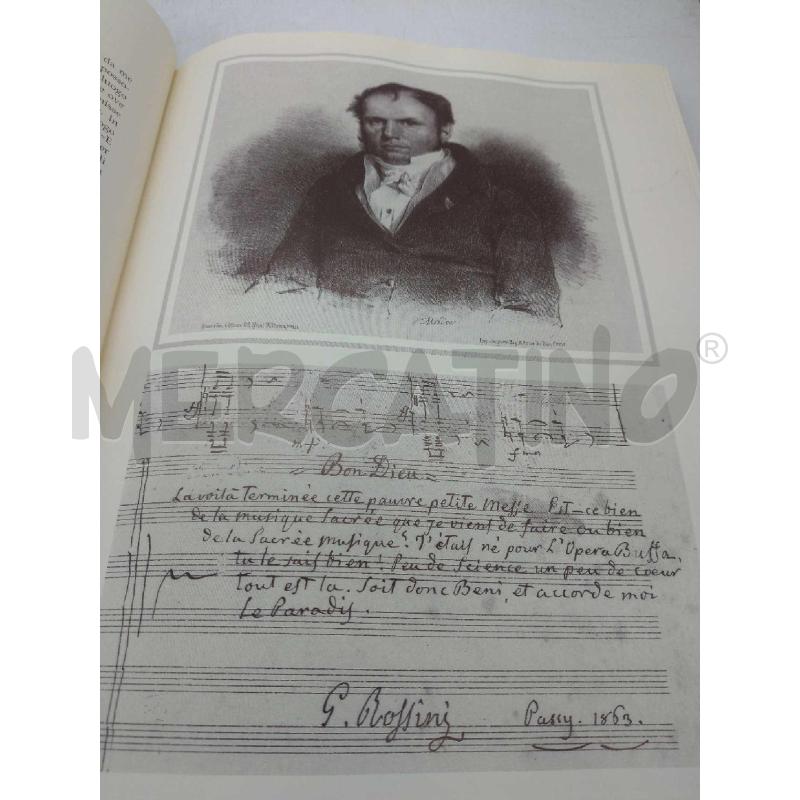 da me
possa.
luogo
ove
nisse
in
ogo
-E
er
li
MERCATINO®
mf
f
= Bon Dieu =
La voilà terminée cette pauvre petite Messe. Est-ce bien
de la musique Sacrée que je viens de faire ou bien
de la Sacrée musique? J'étais né pour L'Opera Buffa,
tu le sais bien! Peu de science un peu de cœur
tout est la. Soit donc Beni, et accorde moi
Le Paradis.
G. Rossini Passy. 1863.